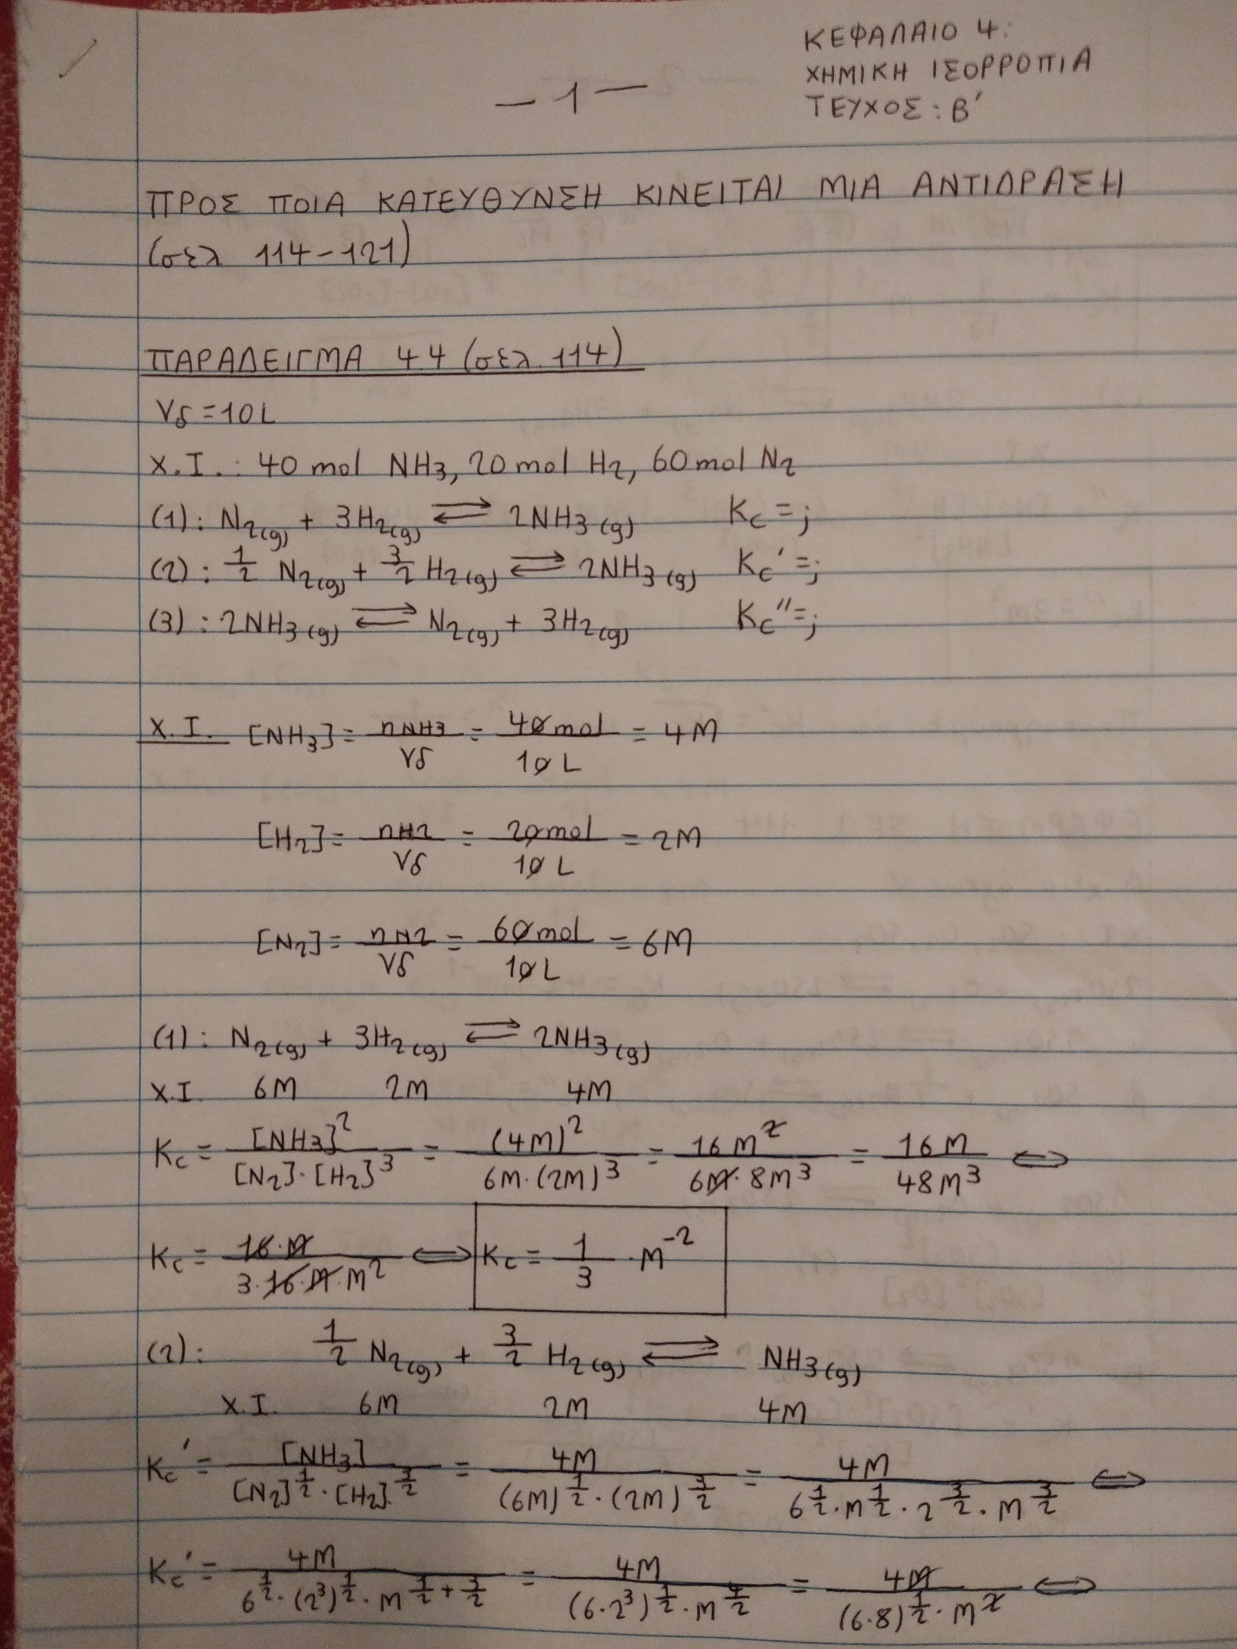 ΚΕΦΑΛΑΙΟ 4:
ΧΗΜΙΚΗ ΙΣΟΡΡΟΠΙΑ
ΤΕΥΧΟΣ: Β'
-1-
ΠΡΟΣ ΠΟΙΑ ΚΑΤΕΥΘΥΝΣΗ ΚΙΝΕΙΤΑΙ ΜΙΑ ΑΝΤΙΔΡΑΣΗ
(σελ 114-121)
ΠΑΡΑΔΕΙΓΜΑ 4.4 (σελ 114)
Vδ = 10L
Χ.Ι.: 40 mol NH₃, 20 mol H₂, 60 mol N₂
(1): N₂(g) + 3H₂(g) ⇌ 2NH₃(g) Kc = ;
(2): 1/2 N₂(g) + 3/2 H₂(g) ⇌ 2NH₃(g) Kc' = ;
(3): 2NH₃(g) ⇌ N₂(g) + 3H₂(g) Kc'' = ;
Χ.Ι. [NH₃] = nNH₃/Vδ = 40 mol/10 L = 4M
[H₂] = nH₂/Vδ = 20 mol/10 L = 2M
[N₂] = nN₂/Vδ = 60 mol/10 L = 6M
(1): N₂(g) + 3H₂(g) ⇌ 2NH₃(g)
Χ.Ι. 6M 2M 4M
Kc = [NH₃]²/([N₂]·[H₂]³) = (4M)²/(6M·(2M)³) = 16M²/(6M·8M³) = 16M/48M³ ⇔
Kc = 16·M/(3·16·M·M²) ⇔ Kc = 1/3 · M⁻²
(2): 1/2 N₂(g) + 3/2 H₂(g) ⇌ NH₃(g)
Χ.Ι. 6M 2M 4M
Kc' = [NH₃]/([N₂]^(1/2)·[H₂]^(3/2)) = 4M/((6M)^(1/2)·(2M)^(3/2)) = 4M/(6^(1/2)·M^(1/2)·2^(3/2)·M^(3/2)) ⇔
Kc' = 4M/(6^(1/2)·(2³)^(1/2)·M^(1/2+3/2)) = 4M/((6·2³)^(1/2)·M^(4/2)) = 4M/((6·8)^(1/2)·M²) ⇔